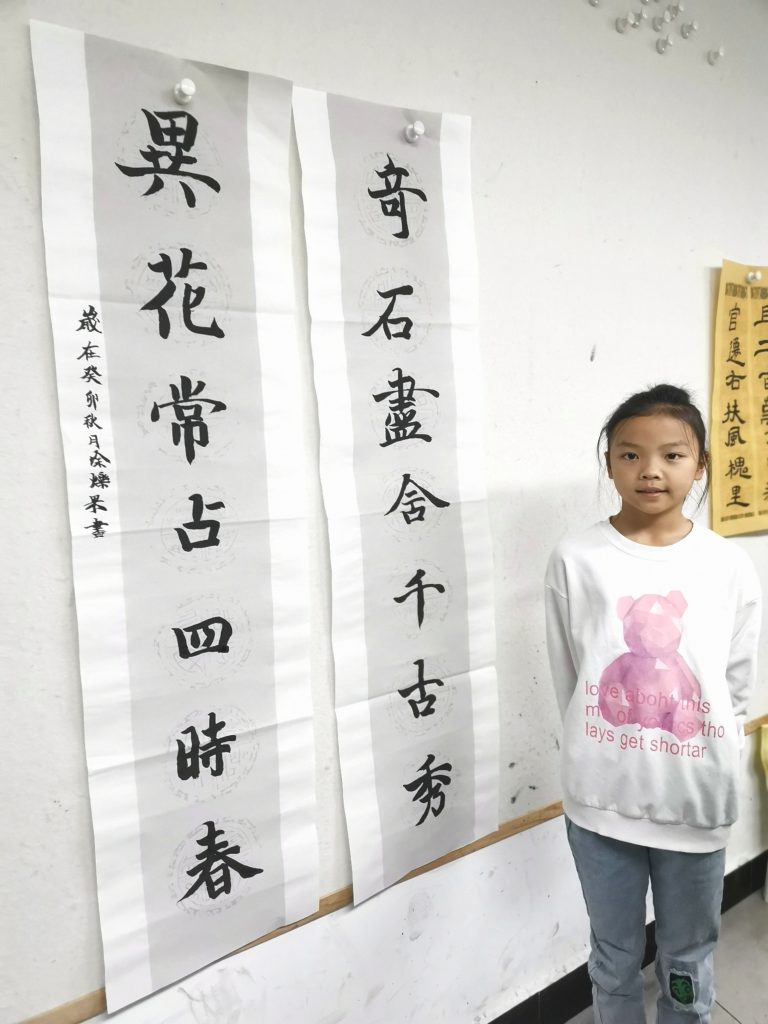 奇石盡舍千古秀
異花常占四時春
歲在癸卯秋月徐爍果書
官遷右扶風槐里
love aboht this
tho
lays get shortar